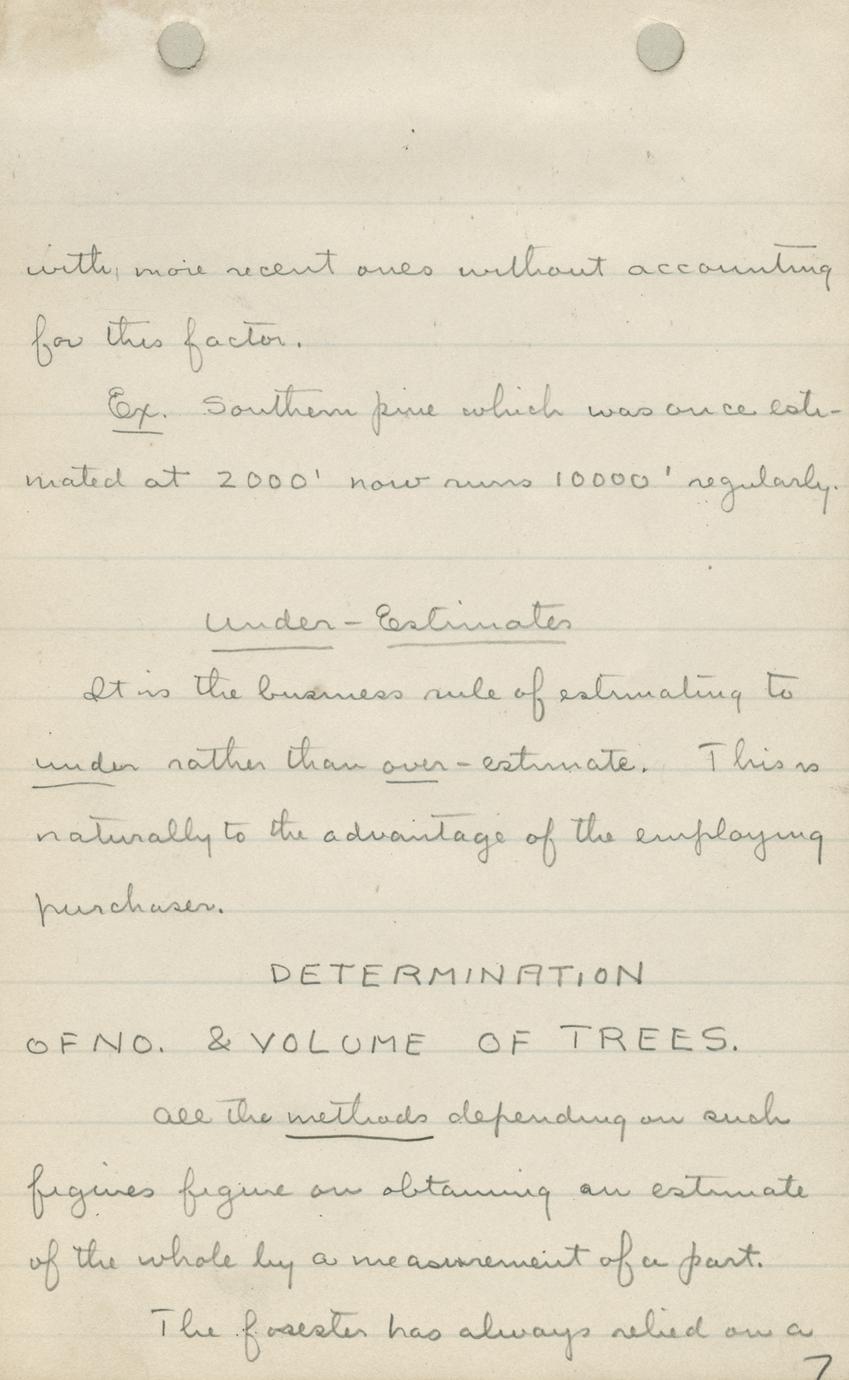 with, more recent ones without accounting
for this factor.
Ex. Southern pine which was once esti-
mated at 2000' now runs 10000' regularly.
Under-Estimates
It is the business rule of estimating to
under rather than over-estimate. This is
naturally to the advantage of the employing
purchaser.
DETERMINATION
OF NO. & VOLUME OF TREES.
All the methods depending on such
figures figure on obtaining an estimate
of the whole by a measurement of a part.
The forester has always relied on a
7